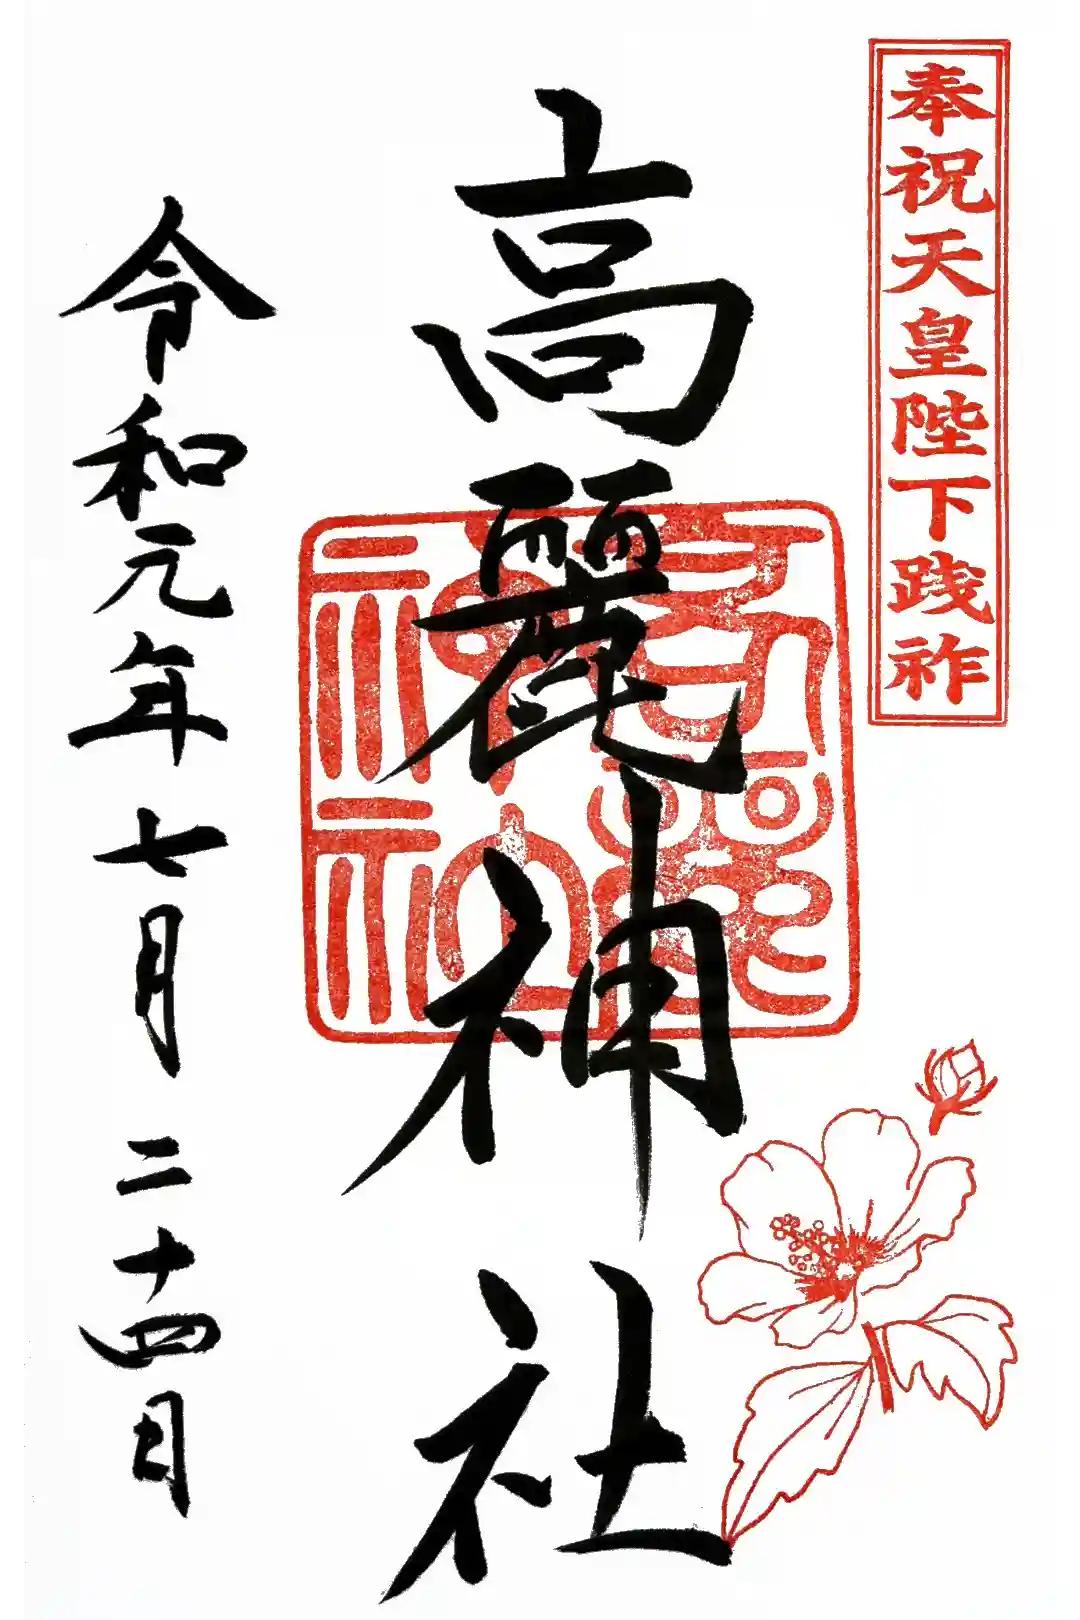 奉祝天皇陛下践祚
高麗神社
高麗神社
令和元年七月二十四日